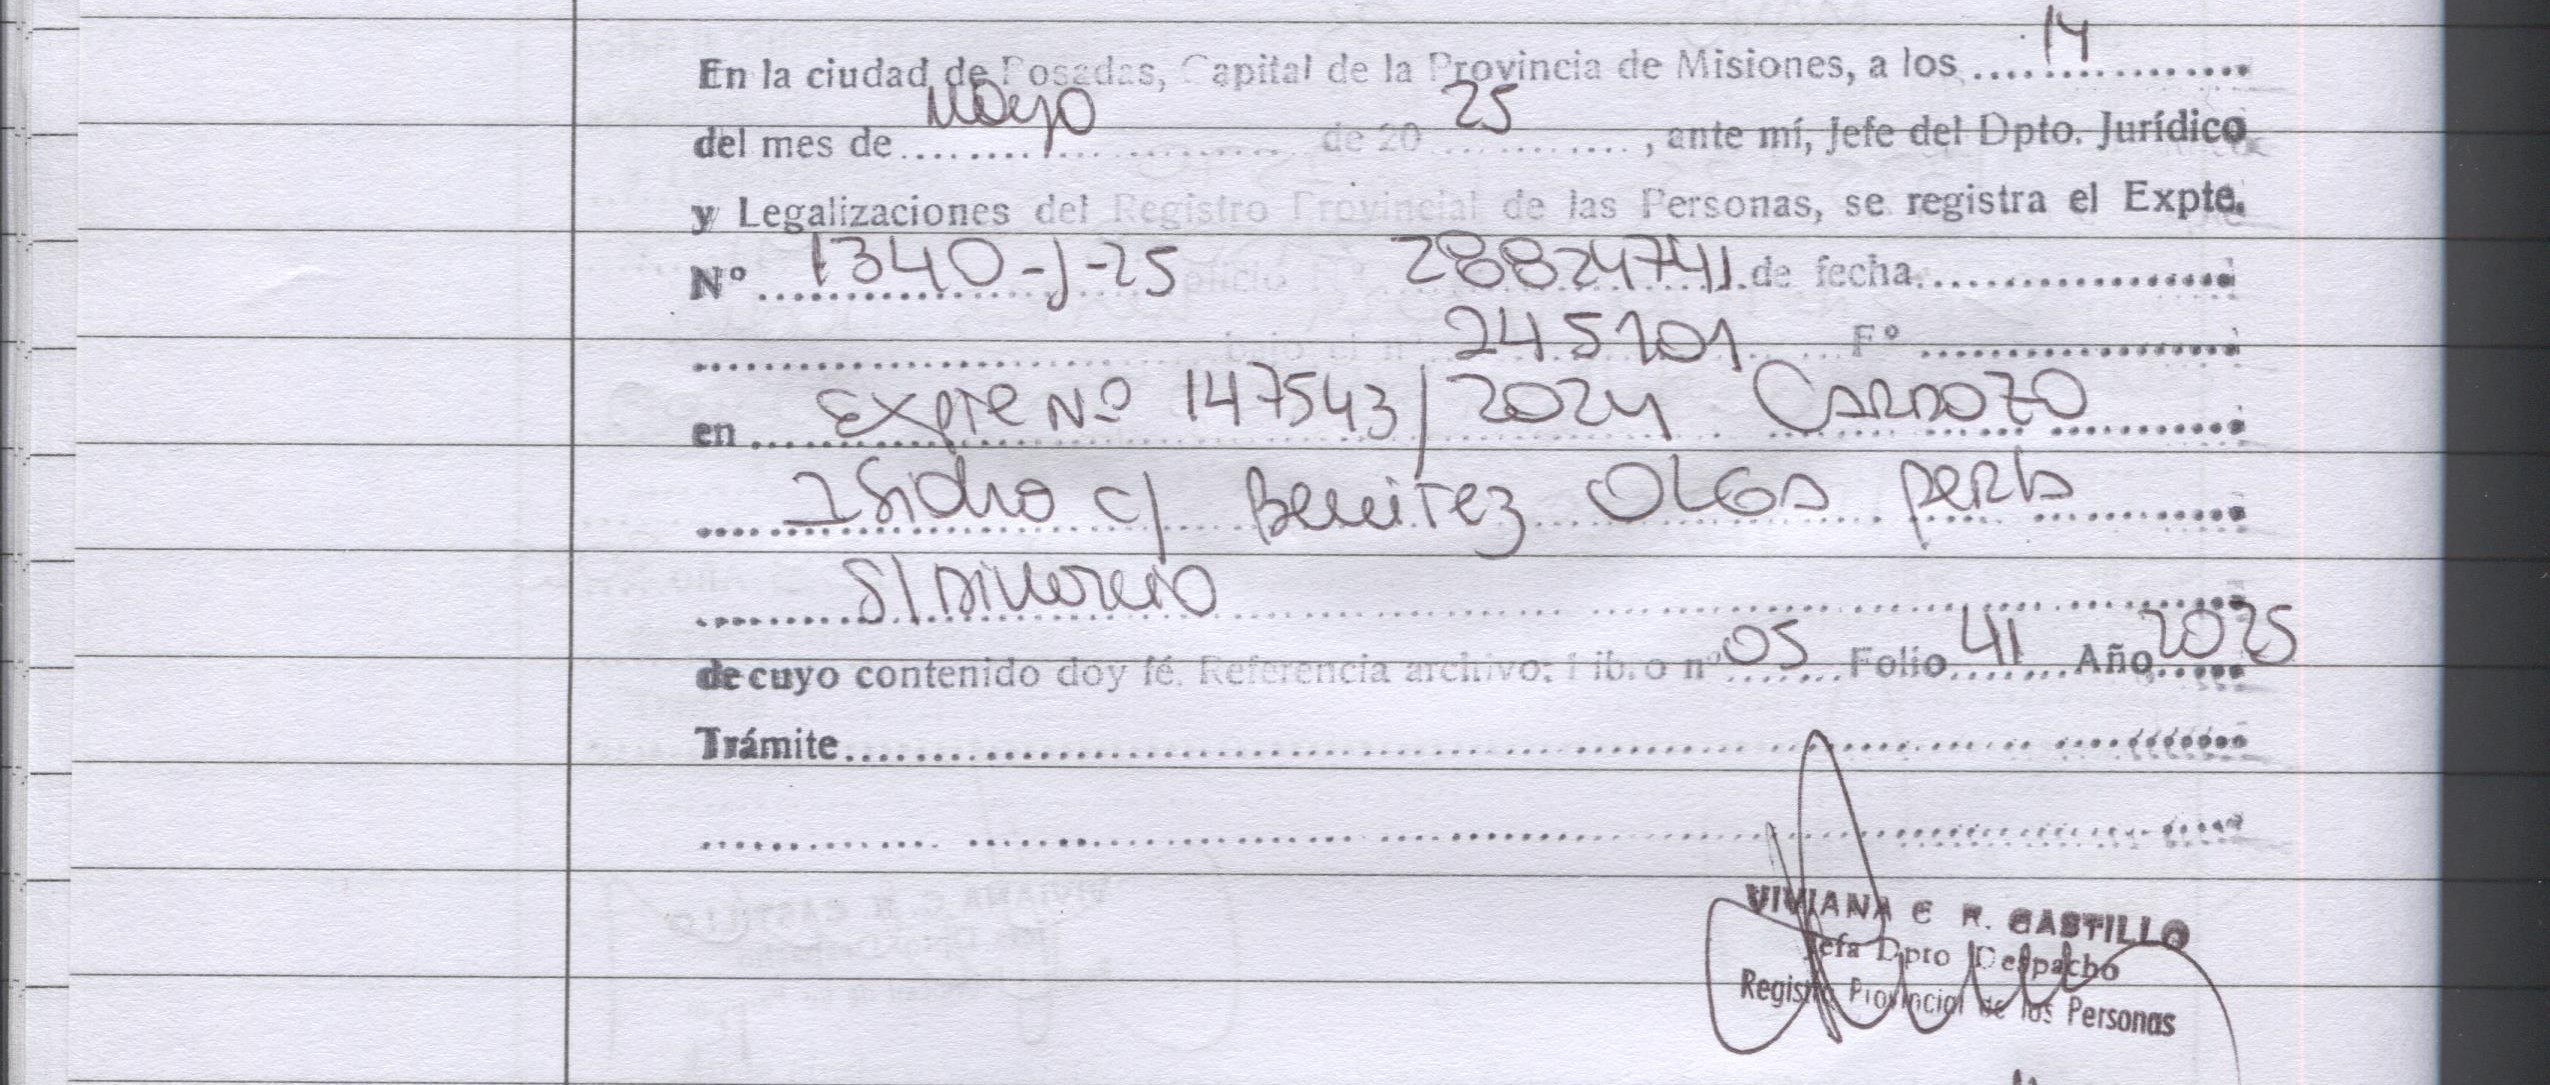 En la ciudad de Posadas, Capital de la Provincia de Misiones, a los 14
del mes de Mayo de 20 25, ante mí, Jefe del Dpto. Jurídico
y Legalizaciones del Registro Provincial de las Personas, se registra el Expte.
Nº 1340-J-25 28824741 de fecha
245101 Fº
en Expte Nº 147543/2024 Cardozo
Isidro c/ Benitez OLGA perla
S/ Divorcio
de cuyo contenido doy fé. Referencia archivo: Libro nº 05 Folio 41 Año 2025
Trámite
VIVIANA C R. CASTILLO
Jefa Dpto Despacho
Registro Provincial de las Personas